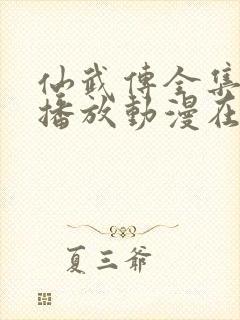 仙武傳全集
播放動漫在
夏三爺